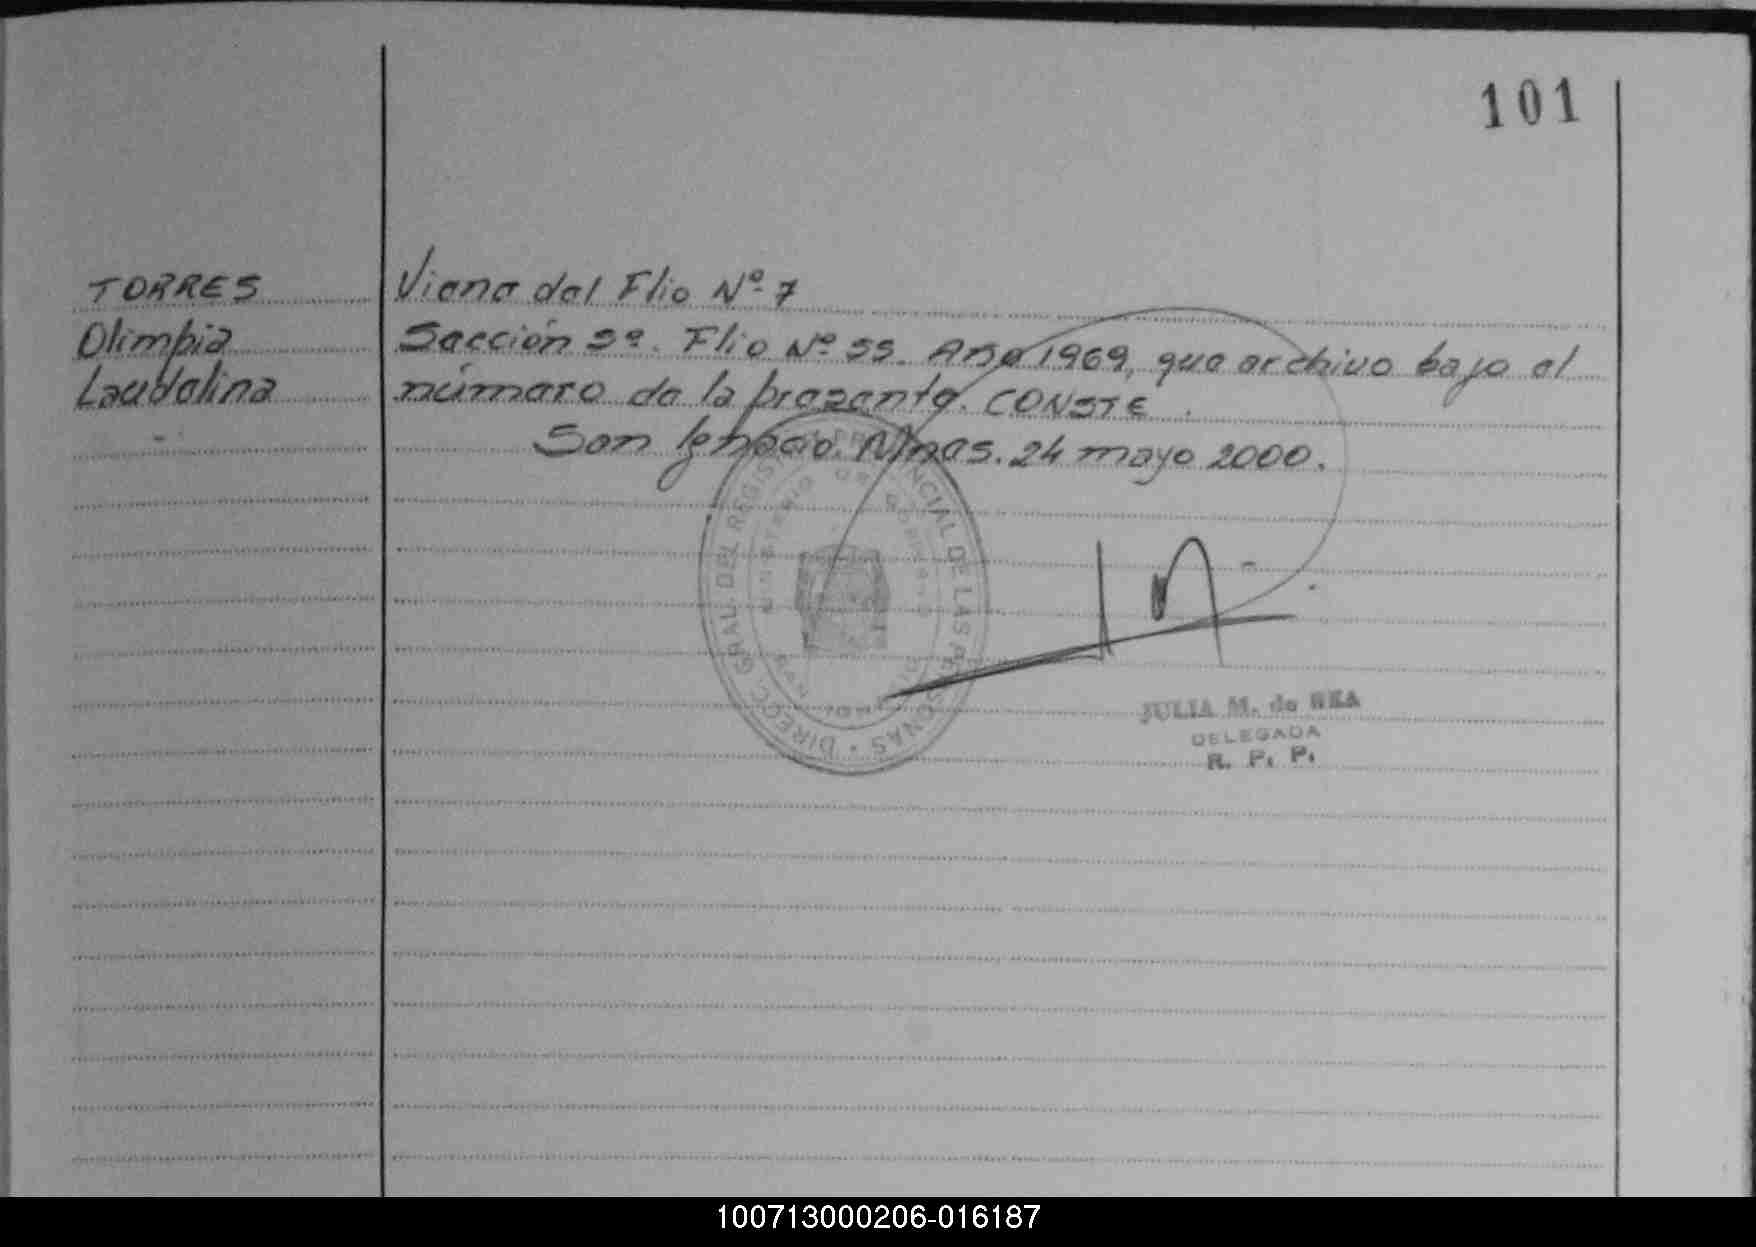 101
TORRES
Olimpia
Laudelina
Viene del Flio Nº 7
Sección 5ª. Flio Nº 55. Año 1969, que archivo bajo el
número de la presente. CONSTE.
San Ignacio. Mnas. 24 mayo 2000.
DIRECC. GRAL. DEL REGIS PROVINCIAL DE LAS PERSONAS
MINISTERIO DE GOBIERNO
JULIA M. de REA
DELEGADA
R. P. P.
100713000206-016187